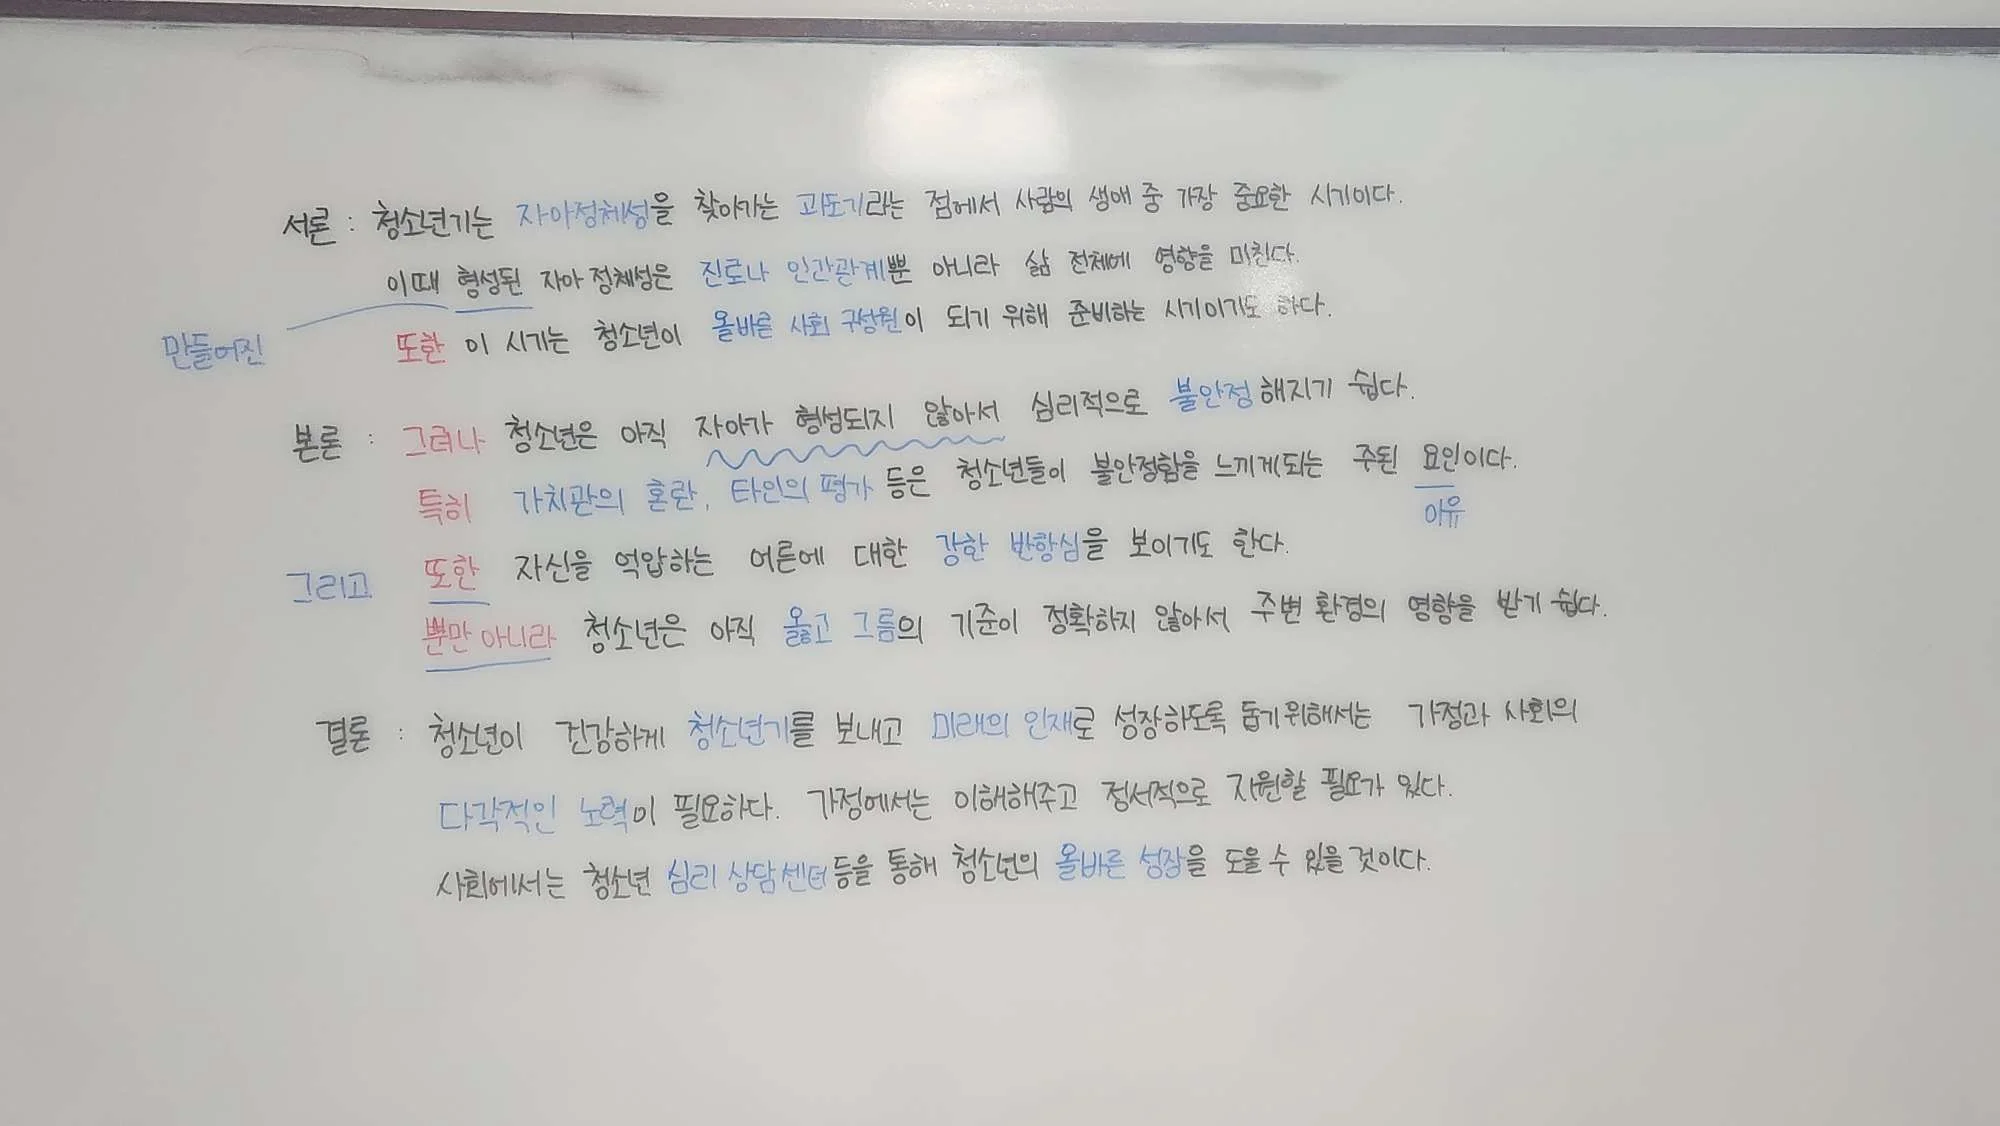 서론 : 청소년기는 자아정체성을 찾아가는 과도기라는 점에서 사람의 생애 중 가장 중요한 시기이다.
이때 형성된 자아 정체성은 진로나 인간관계뿐 아니라 삶 전체에 영향을 미친다.
만들어진
또한 이 시기는 청소년이 올바른 사회 구성원이 되기 위해 준비하는 시기이기도 하다.
본론 : 그러나 청소년은 아직 자아가 형성되지 않아서 심리적으로 불안정해지기 쉽다.
특히 가치관의 혼란, 타인의 평가 등은 청소년들이 불안정함을 느끼게되는 주된 요인이다.
이유
또한 자신을 억압하는 어른에 대한 강한 반항심을 보이기도 한다.
그리고
뿐만 아니라 청소년은 아직 옳고 그름의 기준이 정확하지 않아서 주변 환경의 영향을 받기 쉽다.
결론 : 청소년이 건강하게 청소년기를 보내고 미래의 인재로 성장하도록 돕기위해서는 가정과 사회의
다각적인 노력이 필요하다. 가정에서는 이해해주고 정서적으로 지원할 필요가 있다.
사회에서는 청소년 심리 상담센터등을 통해 청소년의 올바른 성장을 도울 수 있을 것이다.